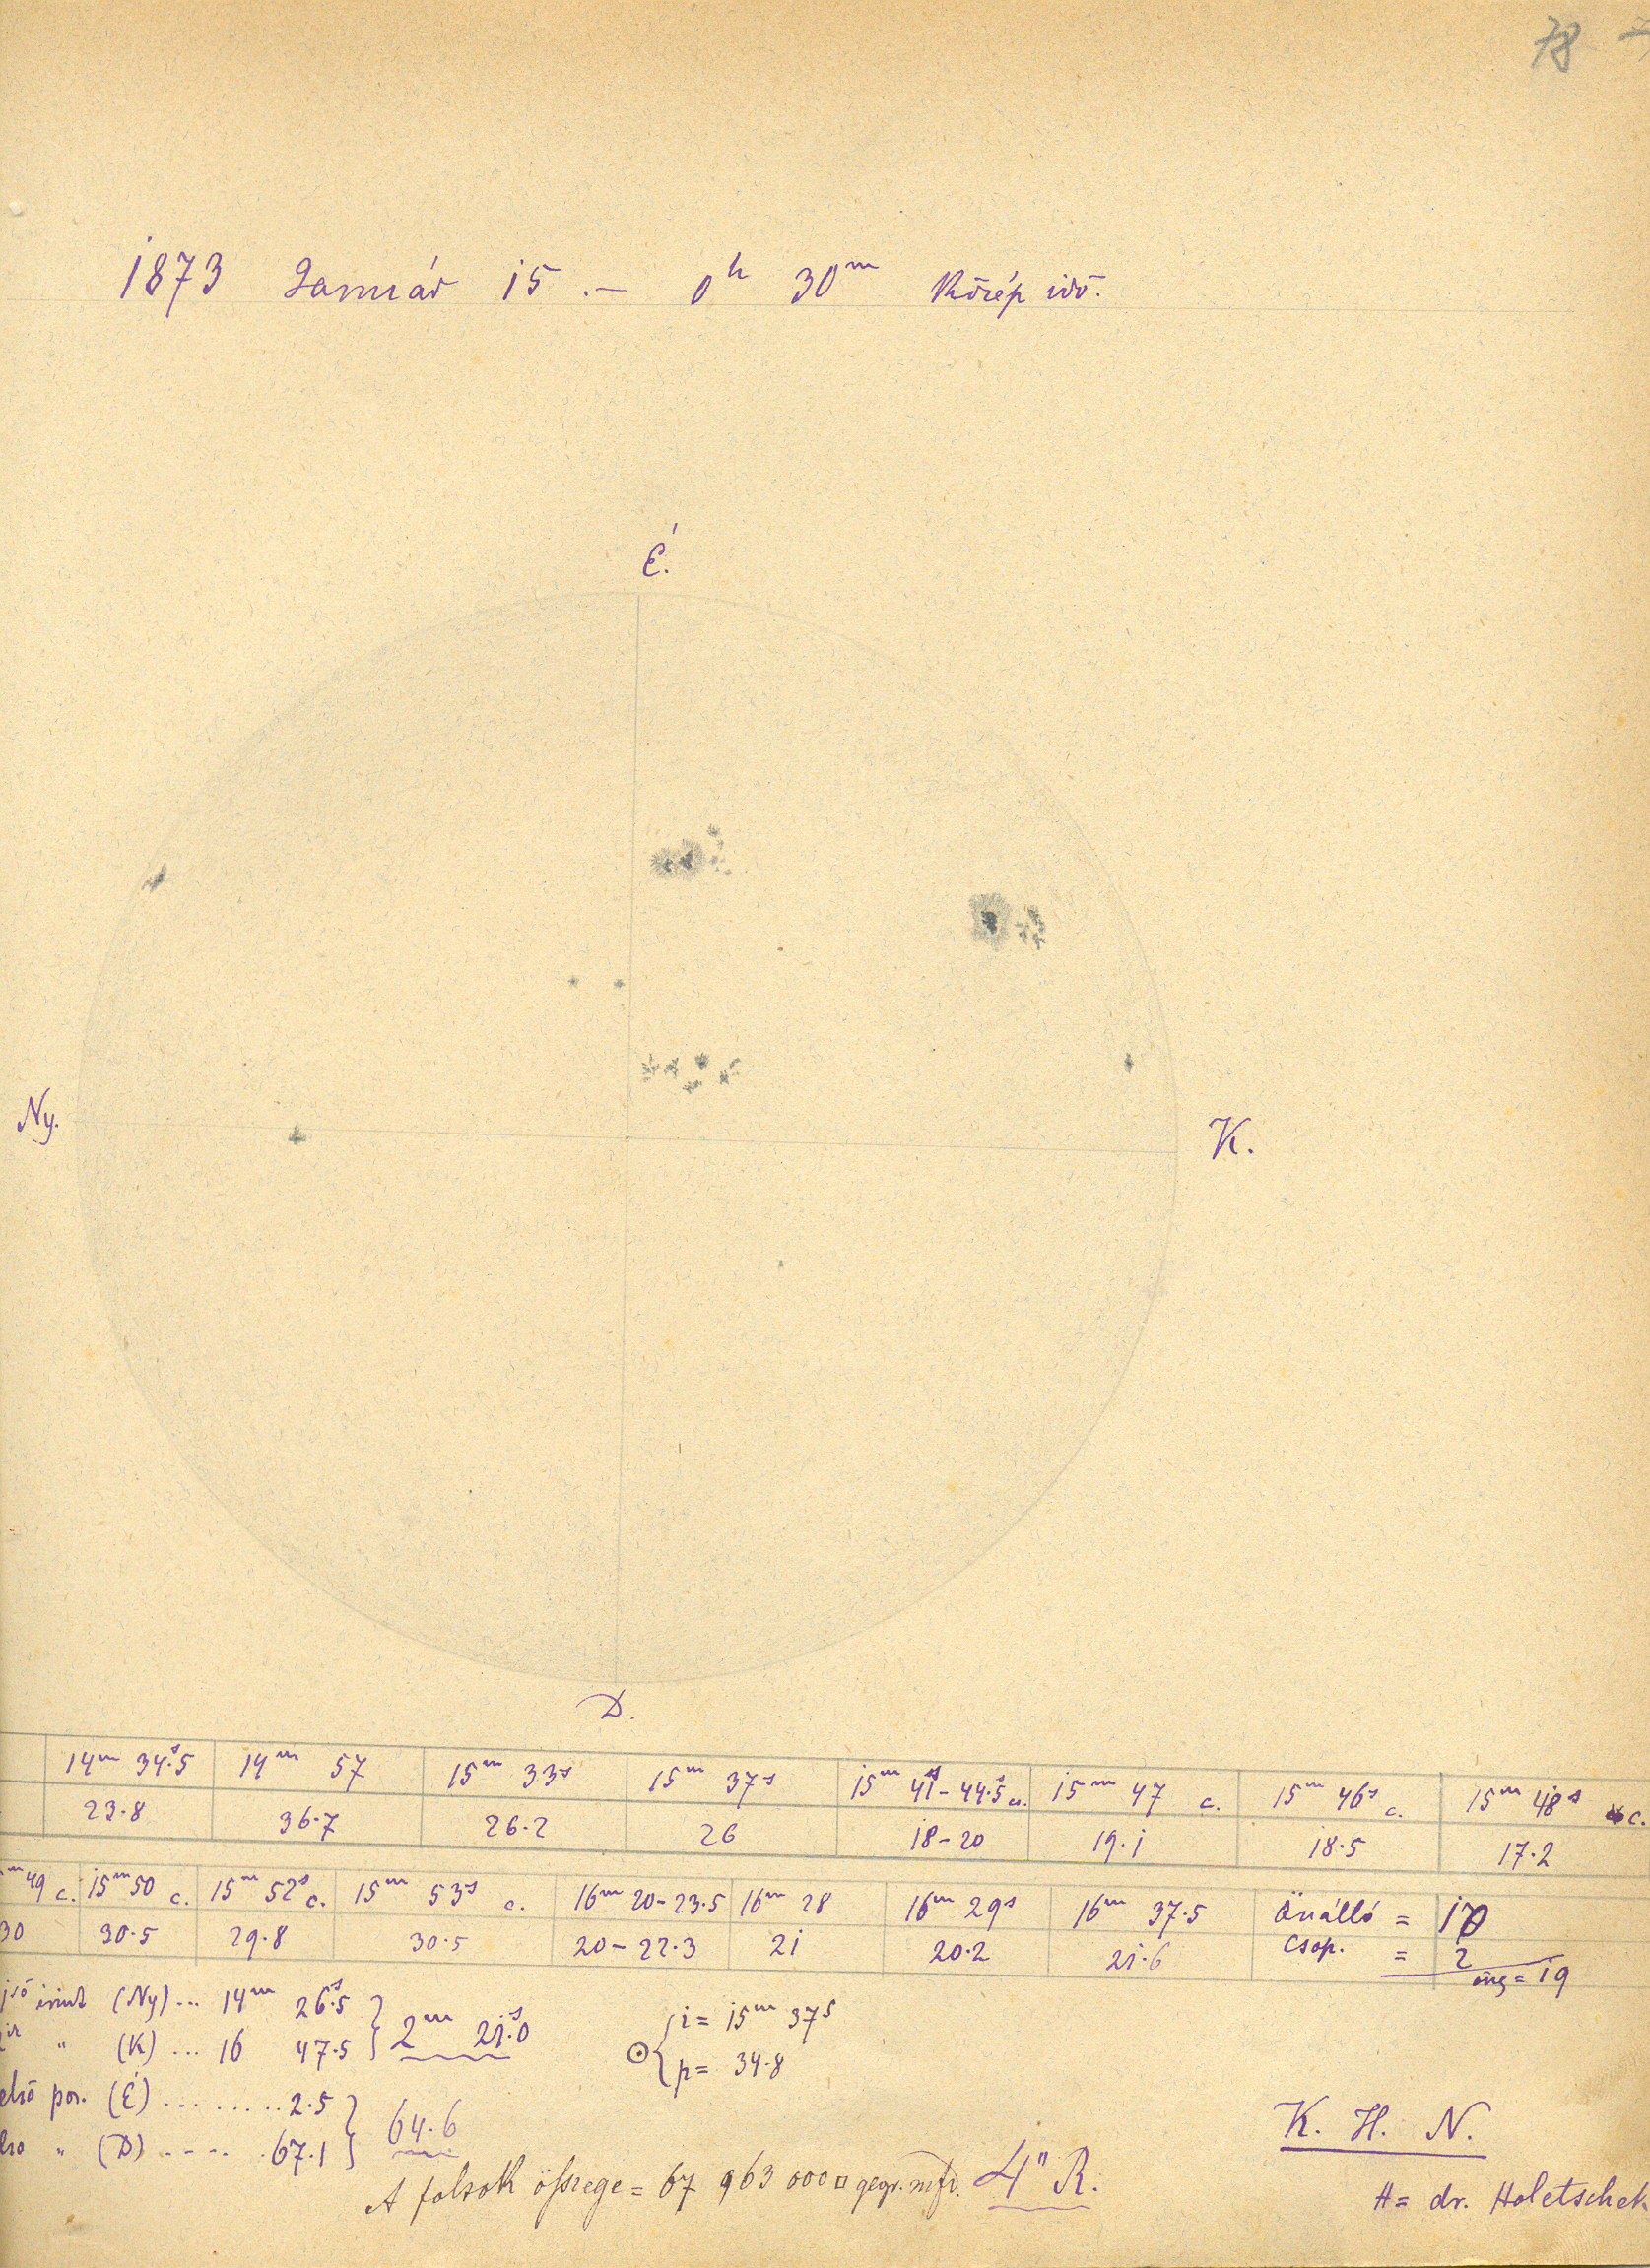 78
1873 Január 15 .– 0h 30m Közép idő.
É.
Ny.
K.
D.
14m 34.s5 14m 57 15m 33s 15m 37s 15m 41-44.s5 c. 15m 47 c. 15m 46s c. 15m 48s c.
23.8 36.7 26.2 26 18-20 19.1 18.5 17.2
m 49 c. 15m 50 c. 15m 52s c. 15m 53s c. 16m 20-23.5 16m 28 16m 29s 16m 37.5 Önálló = 17
30 30.5 29.8 30.5 20-22.3 21 20.2 21.6 Csop. = 2
össz = 19
érint (Ny) ... 14m 26.s5
" (K) ... 16 47.5 2m 21.s0
i = 15m 37s
☉ p = 34.8
első pos. (É) ......... 2.5
" (D) ..... 67.1 64.6
A foltok összege = 67 963 000 □ gegr. mfd. 4" R.
K. H. N.
H = dr. Holetschek